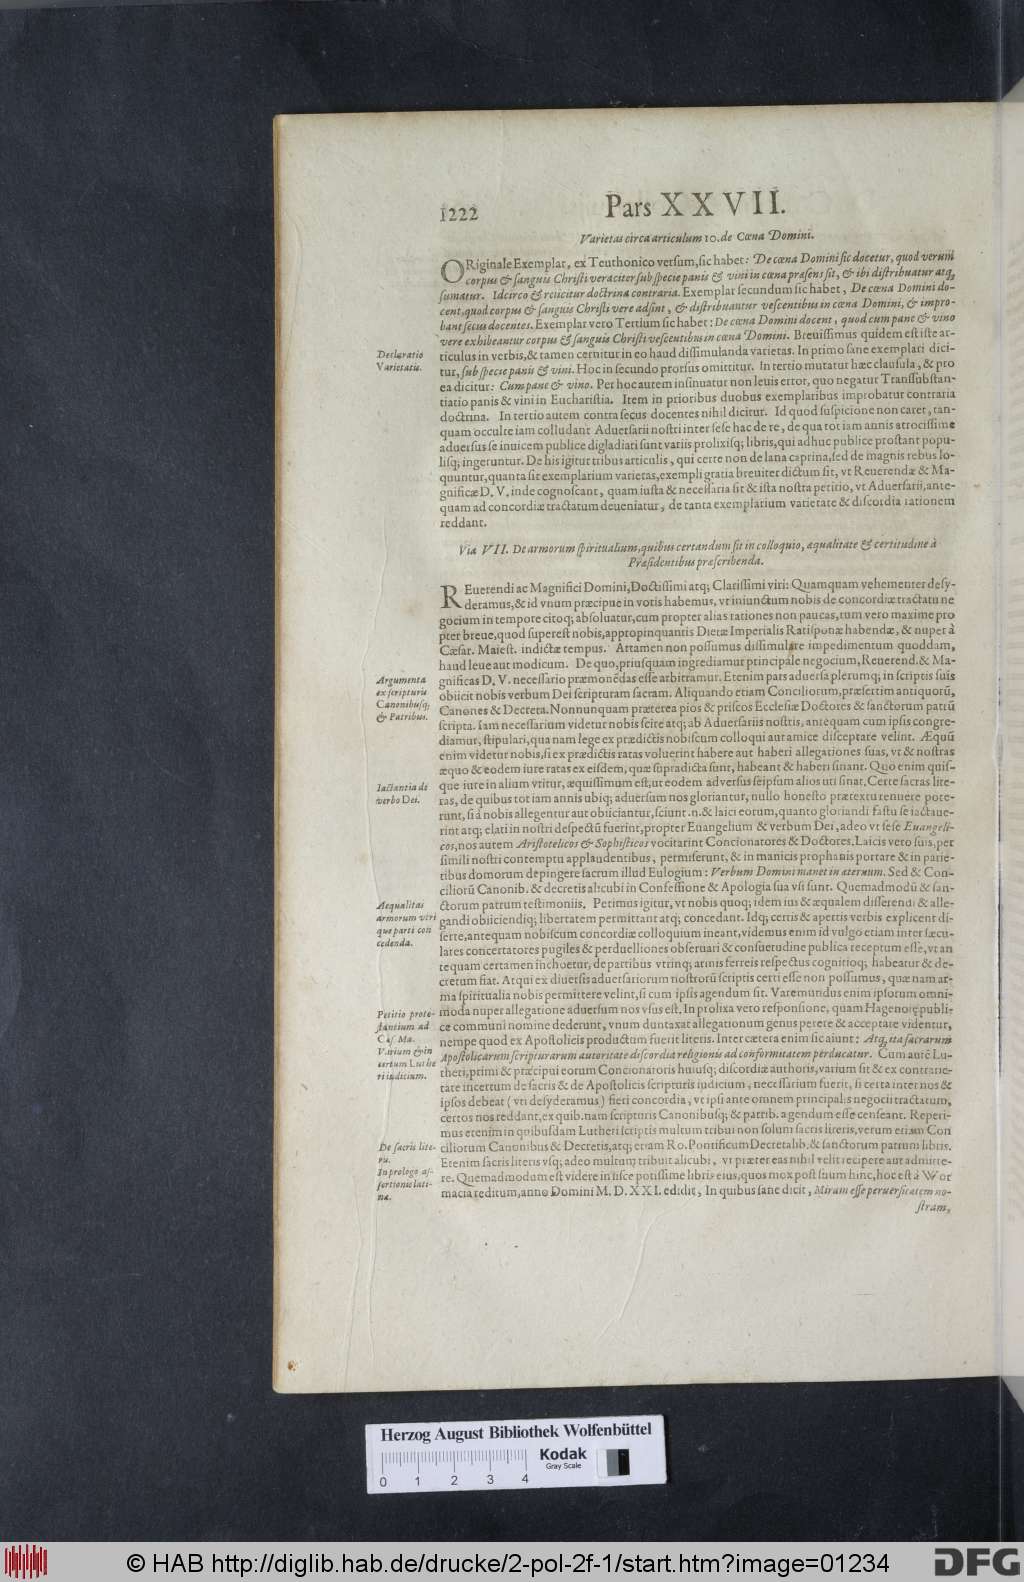 1222
Pars XXVII.
Varietas circa articulum 10. de Cœna Domini.
ORiginale Exemplar, ex Teuthonico versum, sic habet: De cœna Domini sic docetur, quod verum
corpus & sanguis Christi veraciter sub specie panis & vini in cœna præsens sit, & ibi distribuatur atq;
sumatur. Idcirco & reiicitur doctrina contraria. Exemplar secundum sic habet, De cœna Domini do-
cent, quod corpus & sanguis Christi vere adsint, & distribuantur vescentibus in cœna Domini, & impro-
bant secus docentes. Exemplar vero Tertium sic habet: De cœna Domini docent, quod cum pane & vino
vere exhibeantur corpus & sanguis Christi vescentibus in cœna Domini. Breuissimus quidem est iste ar-
Declaratio
Varietatis.
ticulus in verbis, & tamen cernitur in eo haud dissimulanda varietas. In primo sane exemplari dici-
tur, sub specie panis & vini. Hoc in secundo prorsus omittitur. In tertio mutatur hæc clausula, & pro
ea dicitur: Cum pane & vino. Per hoc autem insinuatur non leuis error, quo negatur Transsubstan-
tiatio panis & vini in Eucharistia. Item in prioribus duobus exemplaribus improbatur contraria
doctrina. In tertio autem contra secus docentes nihil dicitur. Id quod suspicione non caret, tan-
quam occulte iam colludant Aduersarii nostri inter sese hac de re, de qua tot iam annis atrocissime
aduersus se inuicem publice digladiati sunt variis prolixisq; libris, qui adhuc publice prostant popu-
lisq; ingeruntur. De his igitur tribus articulis, qui certe non de lana caprina, sed de magnis rebus lo-
quuntur, quanta sit exemplarium varietas, exempli gratia breuiter dictum sit, vt Reuerendæ & Ma-
gnificæ D. V. inde cognoscant, quam iusta & necessaria sit & ista nostra petitio, vt Aduersarii, ante-
quam ad concordiæ tractatum deueniatur, de tanta exemplarium varietate & discordia rationem
reddant.
Via VII. De armorum spiritualium, quibus certandum sit in colloquio, aqualitate & certitudine à
Præsidentibus præscribenda.
REuerendi ac Magnifici Domini, Doctissimi atq; Clarissimi viri: Quamquam vehementer desy-
deramus, & id vnum præcipue in votis habemus, vt iniunctum nobis de concordiæ tractatu ne
gocium in tempore citoq; absoluatur, cum propter alias rationes non paucas, tum vero maxime pro
pter breue, quod superest nobis, appropinquantis Dietæ Imperialis Ratisponæ habendæ, & nuper à
Cæsar. Maiest. indictæ tempus. Attamen non possumus dissimulare impedimentum quoddam,
haud leue aut modicum. De quo, priusquam ingrediamur principale negocium, Reuerend. & Ma-
Argumenta
ex scripturis
Canonibusq;
& Patribus.
gnificas D. V. necessario præmonēdas esse arbitramur. Etenim pars aduersa plerumq; in scriptis suis
obiicit nobis verbum Dei scripturam sacram. Aliquando etiam Conciliorum, præsertim antiquorū,
Canones & Decreta. Nonnunquam præterea pios & priscos Ecclesiæ Doctores & sanctorum patrū
scripta. Iam necessarium videtur nobis scire atq; ab Aduersariis nostris, antequam cum ipsis congre-
diamur, stipulari, qua nam lege ex prædictis nobiscum colloqui aut amice disceptare velint. Æquū
enim videtur nobis, si ex prædictis ratas voluerint habere aut haberi allegationes suas, vt & nostras
æquo & eodem iure ratas ex eisdem, quæ supradicta sunt, habeant & haberi sinant. Quo enim quis-
Iactantia de
verbo Dei.
que iure in alium vtitur, æquissimum est, ut eodem adversus seipsum alios uti sinat. Certe sacras lite-
ras, de quibus tot iam annis ubiq; aduersum nos gloriantur, nullo honesto prætextu renuere pote-
runt, si à nobis allegentur aut obiiciantur, sciunt .n. & laici eorum, quanto gloriandi fastu se iactaue-
rint atq; elati in nostri despectū fuerint, propter Euangelium & verbum Dei, adeo vt sese Euangeli-
cos, nos autem Aristotelicos & Sophisticos vocitarint Concionatores & Doctores. Laicis vero suis, per
simili nostri contemptu applaudentibus, permiserunt, & in manicis prophanis portare & in parie-
tibus domorum depingere sacrum illud Eulogium: Verbum Domini manet in æternum. Sed & Con-
ciliorū Canonib. & decretis alicubi in Confessione & Apologia sua vsi sunt. Quemadmodū & san-
Aequalitas
armorum vtri
que parti con
cedenda.
ctorum patrum testimoniis. Petimus igitur, vt nobis quoq; idem ius & æqualem disserendi & alle-
gandi obiiciendiq; libertatem permittant atq; concedant. Idq; certis & apertis verbis explicent di-
serte, antequam nobiscum concordiæ colloquium ineant, videmus enim id vulgo etiam inter sæcu-
lares concertatores pugiles & perduelliones obseruari & consuetudine publica receptum esse, vt an
tequam certamen inchoetur, de partibus vtrinq; armis ferreis respectus cognitioq; habeatur & de-
cretum fiat. Atqui ex diuersis aduersariorum nostrorū scriptis certi esse non possumus, quæ nam ar-
ma spiritualia nobis permittere velint, si cum ipsis agendum sit. Varemundus enim ipsorum omni-
Petitio prote-
stantium ad
Cæs. Ma.
Varium & in
certum Luthe
ri iudicium.
moda nuper allegatione aduersum nos vsus est. In prolixa vero responsione, quam Hagenoię publi-
ce communi nomine dederunt, vnum duntaxat allegationum genus petere & acceptare videntur,
nempe quod ex Apostolicis productum fuerit literis. Inter cætera enim sic aiunt: Atq; ita sacrarum
Apostolicarum scripturarum autoritate discordia religionis ad conformitatem perducatur. Cum autē Lu-
theri, primi & præcipui eorum Concionatoris huiusq; discordiæ authoris, varium sit & ex contrarie-
tate incertum de sacris & de Apostolicis scripturis iudicium, necessarium fuerit, si certa inter nos &
ipsos debeat (vti desyderamus) fieri concordia, vt ipsi ante omnem principalis negocii tractatum,
certos nos reddant, ex quib. nam scripturis Canonibusq; & patrib. agendum esse censeant. Reperi-
mus etenim in quibusdam Lutheri scriptis multum tribui non solum sacris literis, verum etiam Con
De sacris lite-
ris.
In prologo as-
sertionis lati-
na.
ciliorum Canonibus & Decretis, atq; etiam Ro. Pontificum Decretalib. & sanctorum patrum libris.
Etenim sacris literis vsq; adeo multum tribuit alicubi, vt præter eas nihil velit recipere aut admitte-
re. Quemadmodum est videre in hisce potissime libris eius, quos mox post suum hinc, hoc est à Wor
macia reditum, anno Domini M. D. XXI. edidit, In quibus sane dicit, Miram esse peruersitatem no-
stram,
Herzog August Bibliothek Wolfenbüttel
Kodak
Gray Scale
0 1 2 3 4
© HAB http://diglib.hab.de/drucke/2-pol-2f-1/start.htm?image=01234
DFG